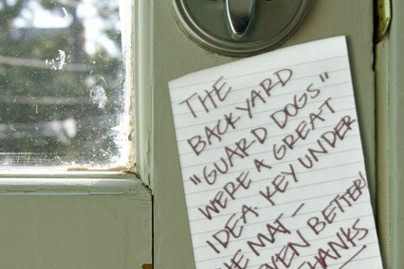 THE
BACKYARD
"GUARD DOGS"
WERE A GREAT
IDEA KEY UNDER
MAT—
EVEN BETTER!
THANKS